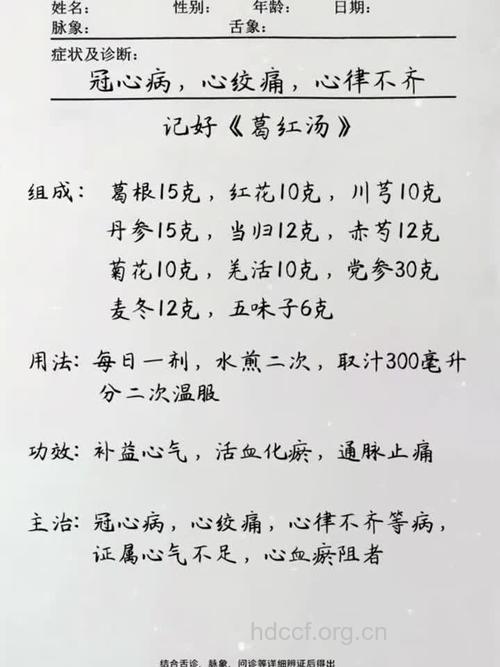 姓名: 性别: 年龄: 日期:
脉象: 舌象:
症状及诊断:
冠心病，心绞痛，心律不齐
记好《葛红汤》
组成: 葛根15克，红花10克，川芎10克
丹参15克，当归12克，赤芍12克
菊花10克，羌活10克，党参30克
麦冬12克，五味子6克
用法: 每日一剂，水煎二次，取汁300毫升
分二次温服
功效: 补益心气，活血化瘀，通脉止痛
主治: 冠心病，心绞痛，心律不齐等病，
证属心气不足，心血瘀阻者
hdccf.org.cn
结合舌诊、脉象、问诊等详细辨证后得出